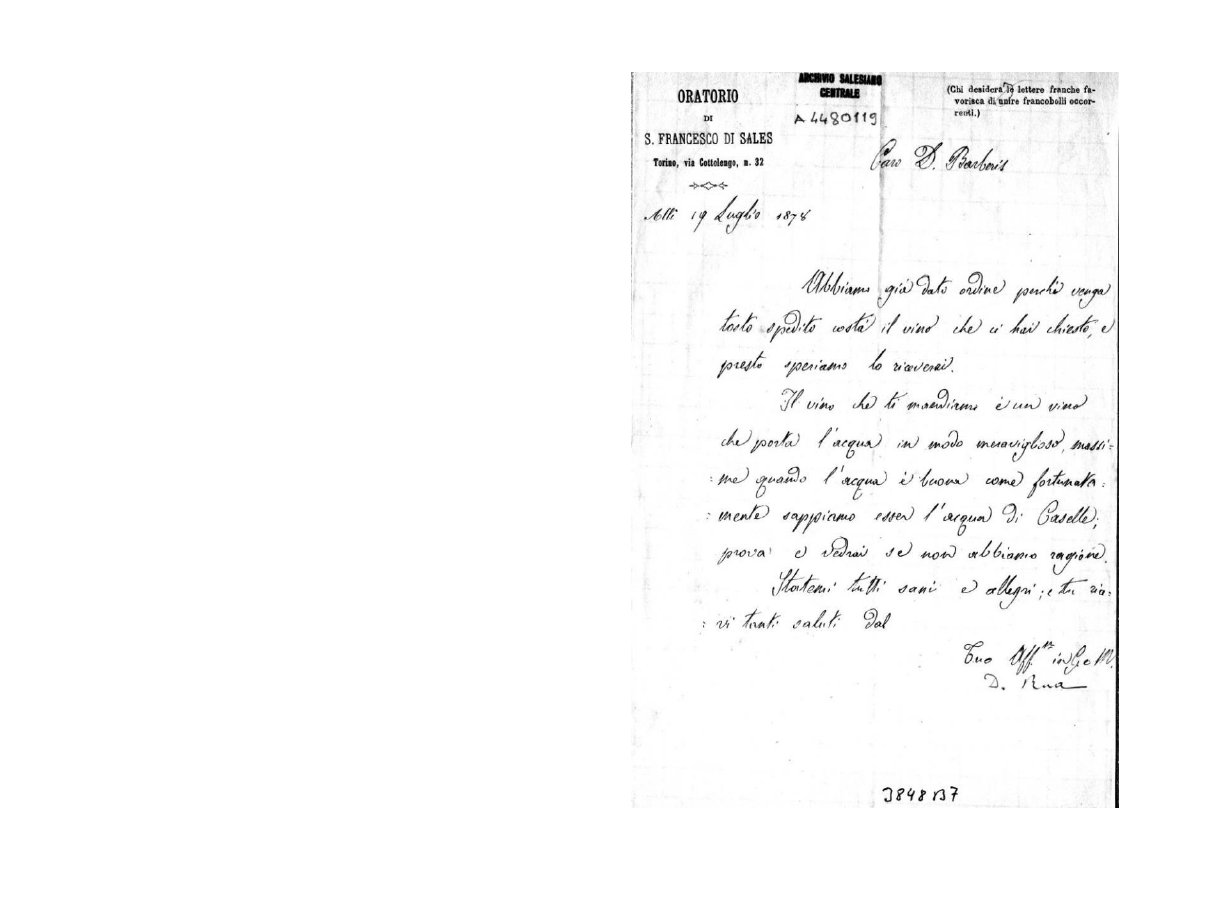 ARCHIVIO SALESIANO
CENTRALE
A 4480119
ORATORIO
DI
S. FRANCESCO DI SALES
Torino, via Cottolengo, n. 32
(Chi desidera le lettere franche fa-
vorisca di unire francobolli occor-
renti.)
Caro D. Barberis
19 Luglio 1878
Abbiamo già dato ordine perchè venga
tosto spedito costà il vino che ci hai chiesto, e
presto speriamo lo riceverai.
Il vino che ti mandiamo è un vino
che porta l'acqua in modo meraviglioso, massi=
:me quando l'acqua è buona come fortunata:
:mente sappiamo esser l'acqua di Caselle;
prova e vedrai se non abbiamo ragione.
Statemi tutti sani e allegri; e tu rice:
:vi tanti saluti dal
Tuo Aff.mo in G. e M.
D. Rua
3848 B7